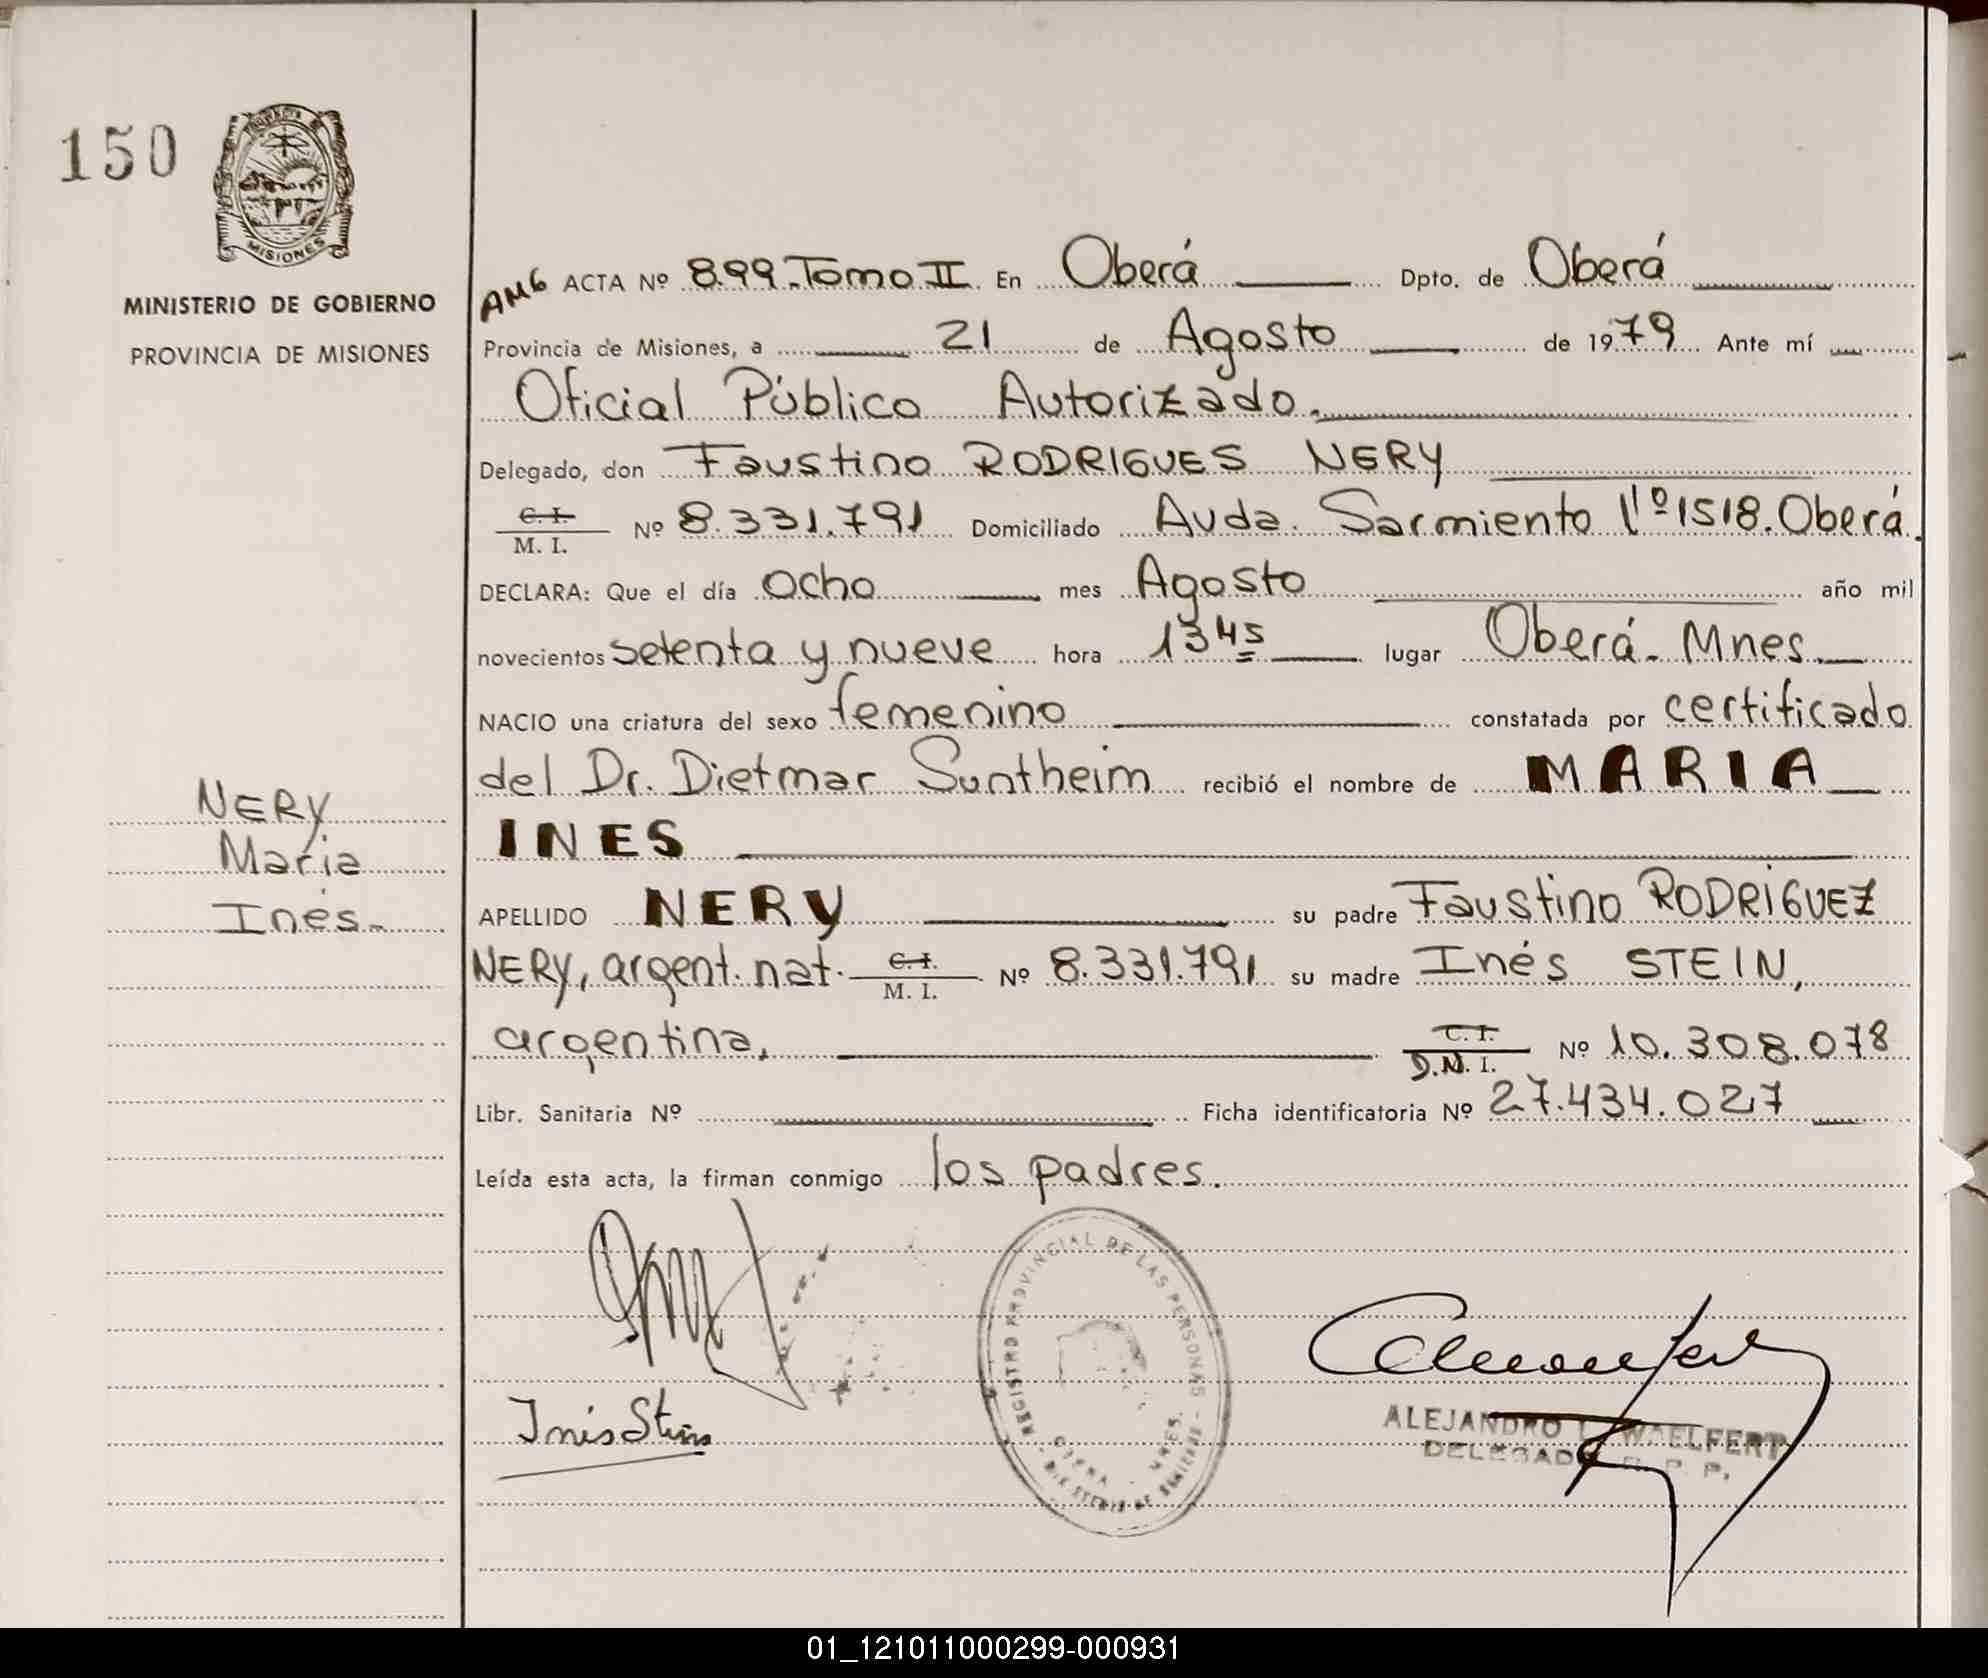 150
MISIONES
MINISTERIO DE GOBIERNO
PROVINCIA DE MISIONES
NERY
Maria
Inés.-
AMG ACTA Nº 899.Tomo II En Oberá Dpto. de Oberá
Provincia de Misiones, a 21 de Agosto de 1979 Ante mí
Oficial Público Autorizado.
Delegado, don Faustino RODRIGUES NERY
C. I.
M. I. Nº 8.331.791 Domiciliado Avda. Sarmiento Nº1518. Oberá.
DECLARA: Que el día ocho mes Agosto año mil
novecientos setenta y nueve hora 13 45 lugar Oberá- Mnes.
NACIO una criatura del sexo femenino constatada por certificado
del Dr. Dietmar Suntheim recibió el nombre de MARIA
INES
APELLIDO NERY su padre Faustino RODRIGUEZ
NERY, argent. nat. C. I.
M. I. Nº 8.331.791 su madre Inés STEIN,
argentina, C. I.
D.N. I. Nº 10.308.078
Libr. Sanitaria Nº Ficha identificatoria Nº 27.434.027
Leída esta acta, la firman conmigo los padres.
Inés Stein
REGISTRO PROVINCIAL DE LAS PERSONAS
OBERA - MNES.
ALEJANDRO WAELFERT
DELEGADO R. P. P.
01_121011000299-000931